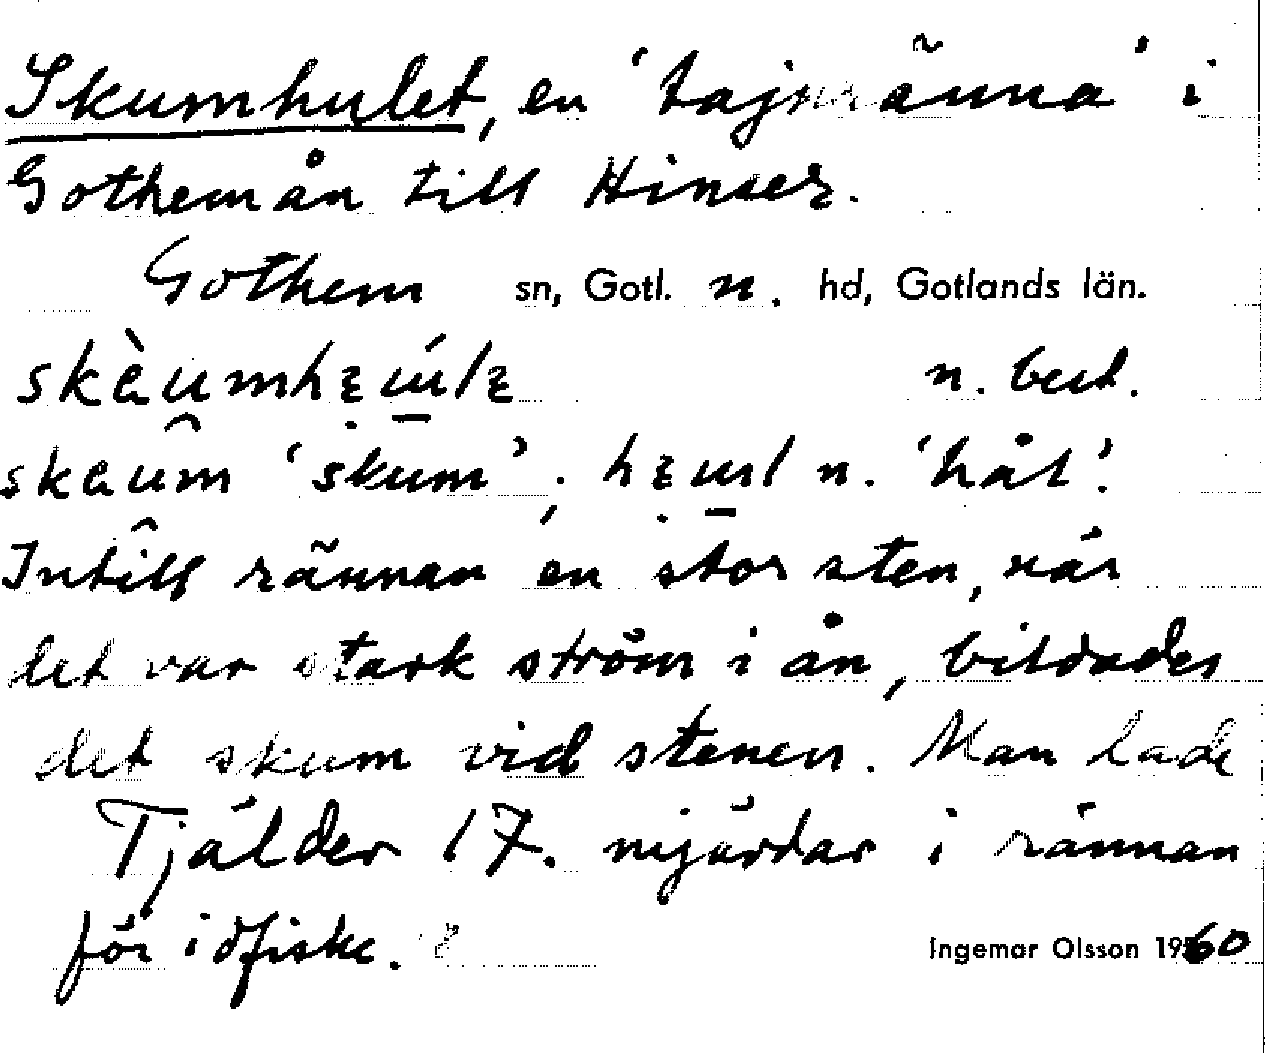 Skumhulet, en 'tajnränna' i
Gothemån till Hinser.
Gothem sn, Gotl. n. hd, Gotlands län.
n. best.
'skum'; n. 'hål'.
Intill rännan en stor sten, när
det var stark ström i ån, bildades
det skum vid stenen. Man lade
Tjälder 17. mjärdar i rännan
för idfiske.
Ingemar Olsson 1960